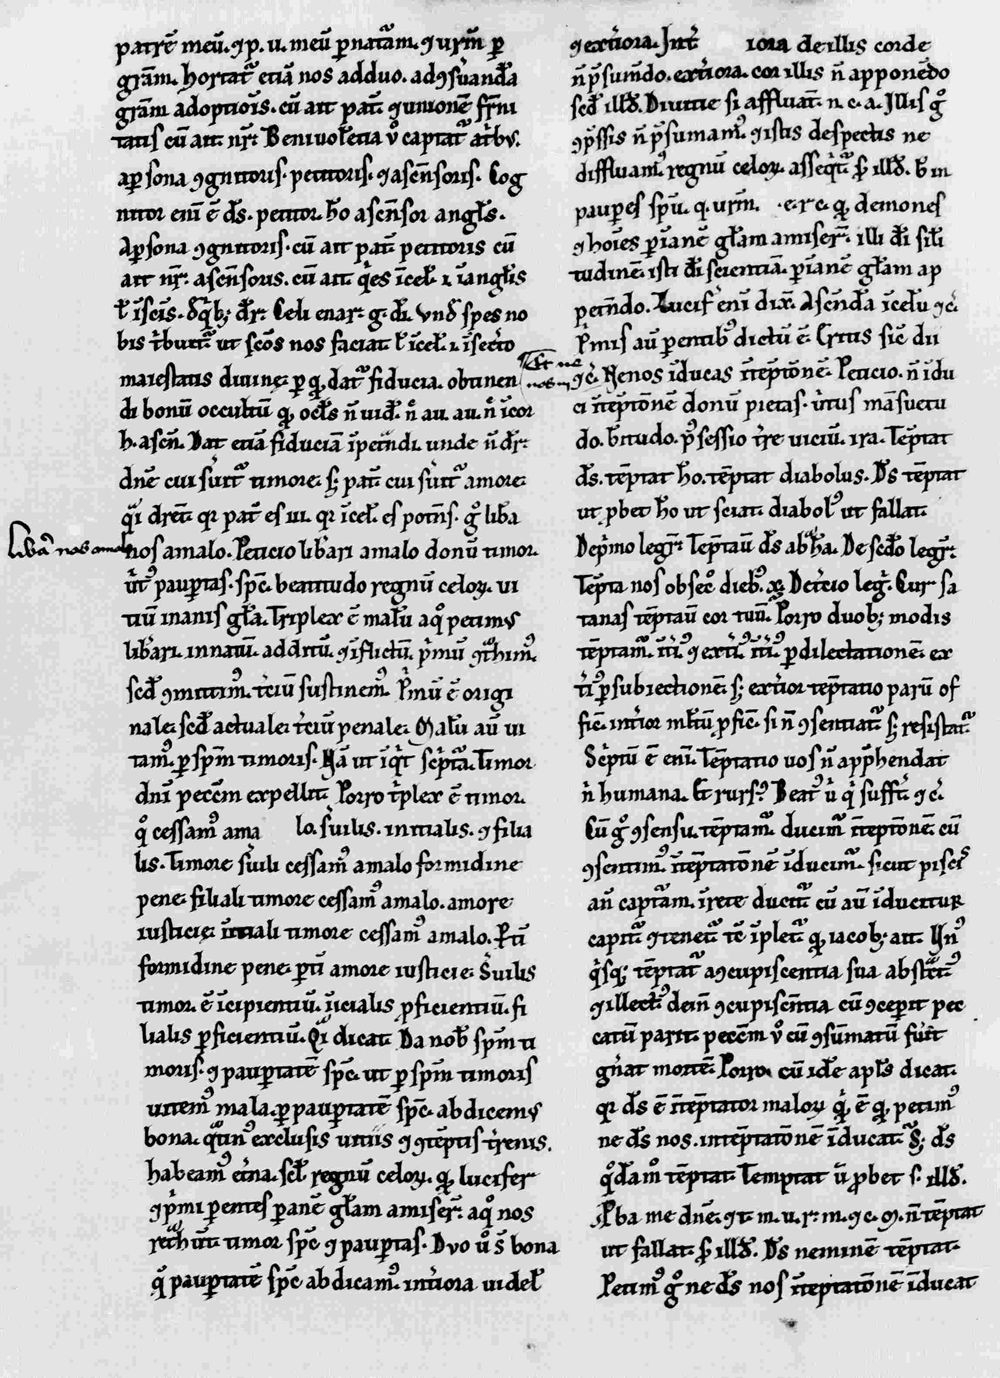 patrē meū. ⁊ p. u. meū p natām. ⁊ urm̄ p
grām. hortat᷑ etiā nos adduo. ad ꝯseruandā
grām adoptiōis. cū ait pat̄. ⁊ unionē frn̄i
tatis cū ait. nr̄. Beniuolētia ũ captat᷑ at͛bꝰ.
a ꝑsona ꝯgnitoris. petitoris. ⁊ asēnsoris. Cog
nitor eni ē ds̄. petitor. hō asēnsor angl̄s.
A ꝑsona ꝯgnitoris. cū ait pat̄ petitoris cū
ait nr̄. asēnsoris. cū ait. q͛ es īcel̄. ı. īangl̄is
ł īscīs. dr̄. Celi enar̄. g. di. und̄ spes no
bis t͛buit᷑ ut scōs nos faciat ł īcel̄. ı. īsecto
maiestatis diuinę. ꝑ q̄ dat᷑ fiducia. obtinen
di bonū occultū q̄ ocl̄s n̄ uid̄. n̄ au. au. n̄ ı̄cor
h. asēn. Dat etiā fiduciā īpetn̄di. unde n̄ dr̄.
dn̄e cui s͛uit᷑ timore. s; pat̄ cui s͛uit᷑ amore.
q̄i dr̄et. qr pat̄ es ut. qr īcel̄. es potn̄s. gͦ lib͛a
nos amalo. Peticio lib͛ari amalo donū timor.
u͛tꝰ pauꝑtas. spc̄. beatitudo regnū celoꝝ. ui
tiū inanis gl̄a. Triplex ē malū aqͦ petimꝰ
lib͛ari. innatū. additū. ⁊ īflictū. p͛mū ꝯt͛himꝰ.
scd̄ ꝯmittimꝰ. t͛ciū sustinemꝰ. P͛mū ē origi
nale. scd̄ actuale. t͛ciū penale. Malū aū ui
tamꝰ. ꝑ spm̄ timoris. Nā ut iq̇t sc͛pt᷑a. Timor
dn̄i pecc̄m expellit. Porro t͛plex ē timor.
qͦ cessamꝰ ama lo. s͛uilis. initialis. ⁊ filia
lis. Timore s͛uili cessamꝰ amalo formidine
pene. filiali timore cessamꝰ amalo. amore
iusticię. initiali timore cessamꝰ amalo. ꝑti
formidine pene. ꝑti amore iusticie. S͛uilis
timor. ē īcipientiū. īicialis ꝓficientiū. fi
lialis ꝑficientiū. Q̄i dicat. Da nob̄ spm̄ ti
moris. ⁊ pauꝑtatē spc̄. ut ꝑ spm̄ timoris
uitemꝰ mala. ꝑ pauꝑtatē spc̄. abdicemꝰ
bona. exclusis uitiis ⁊ ꝯtēptis t͛renis.
habeamꝰ et͛na. scl̄ regnū celoꝝ. q̄ lucifer
⁊ p͛mi ꝑentes ꝑ anē gl̄am amiser̄. aqͦ nos
timor spc̄ ⁊ pauꝑtas. Dvo ũ s̄ bona
q̄ pauꝑtatē spc̄ abdicamꝰ. int͛iora. uidel̄
Lib͛a nos amalo
⁊ ext͛iora. Int͛ iora de illis corde
n̄ p̄sumēdo. ext͛iora. cor illis n̄ apponēdo
scd̄ illd̄. Diuitie si affluāt. n. c. a. Illis gͦ
n̄ p̄sumamꝰ. ⁊ istis despectis ne
diffluamꝰ. regnū celoꝝ. asseq̇m᷑ ẜ illd̄. b̄ti
pauꝑes spū. q. urm̄. e. r. c. q̄ demones
⁊ hoı̄es ꝑ ianē gl̄am amiser̄. illi di sili
tudinē. isti di scientiā. ꝑ ianē gl̄am ap
petn̄do. Lucif͛ eni dix̄. Ascēndā īcelū ⁊c̄.
P͛mis aū parentibꝰ dictū ē. Eritis sic̄ dii
⁊c̄. Ne nos iducas ītēptōnē. Peticio. n̄ idu
ci ītēptōnē donū pietas. u͛tus māsuetu
do. b̄titudo. p̄sessio t͛re uiciū. ira. Tēptat
ds̄. tēptat ho. tēptat diabolus. Ds̄ tēptat
ut ꝓbet ho ut sciat. diabolꝰ ut fallat.
De p͛mo legr̄. Tēptau ds̄ abraha. De scdo legr̄.
Tēpta nos obseͦ diebꝰ. x̄. De t͛cio leg̃. Cur sa
tanas tēptau cor tuū. Porro duob; modis
tēptam᷑. ⁊ ext͛iꝰ. ꝑ dilectationē. ex
t͛iꝰ ꝑ subiectionē s; ext͛ior tēptatio parū of
fic̄. int͛ior ml̄tū ꝓfic̄. si n̄ ꝯsentiat᷑ s; resistat᷑.
Sc͛ptū ē eni. Tēptatio uos n̄ app̄hendat
n̄ humana. Et rursꝰ. Beatꝰ u͛ q̇ suff͛t ⁊c̄.
Cū gͦ ꝯsensu. tēptam᷑. ducim᷑ ītēptōnē. cū
ꝯsentimꝰ. ītēptatōnē īducim᷑. sicut piscis
an̄ captam. īrete ducit᷑ cū aū īducitur
capit᷑ ⁊ tenet᷑ tc̄ īplet᷑ q̄ iacob; ait. Unꝰ
q̇sq; tēptat᷑ a ꝯcupiscentia sua abst͛ctꝰ
⁊ illectꝰ. dein̄ ꝯcupiscētia cū ꝯcep͛it pec
catū parit. pecc̄m ũ cū ꝯsūmatū fu͛it
gn͛at mortē. Porro cū idē apl̄s dicat.
qr ds̄ ē ītēptator maloꝝ q̇ ē q̄ petimꝰ
ne ds̄ nos. intēptatōnē īducat. S; ds̄
q̄dāmͦ tēptat. Temptat ū ꝓbet s. illd̄.
Pba me dn̄e. ⁊ t. m. u. r. m. ⁊ c. m. n̄ tēptat
ut fallat. ẜ illd̄. Ds̄ neminē tēptat.
Petimꝰ gͦ ne ds̄ nos ītēptatōnē īducat
Et ne
nos